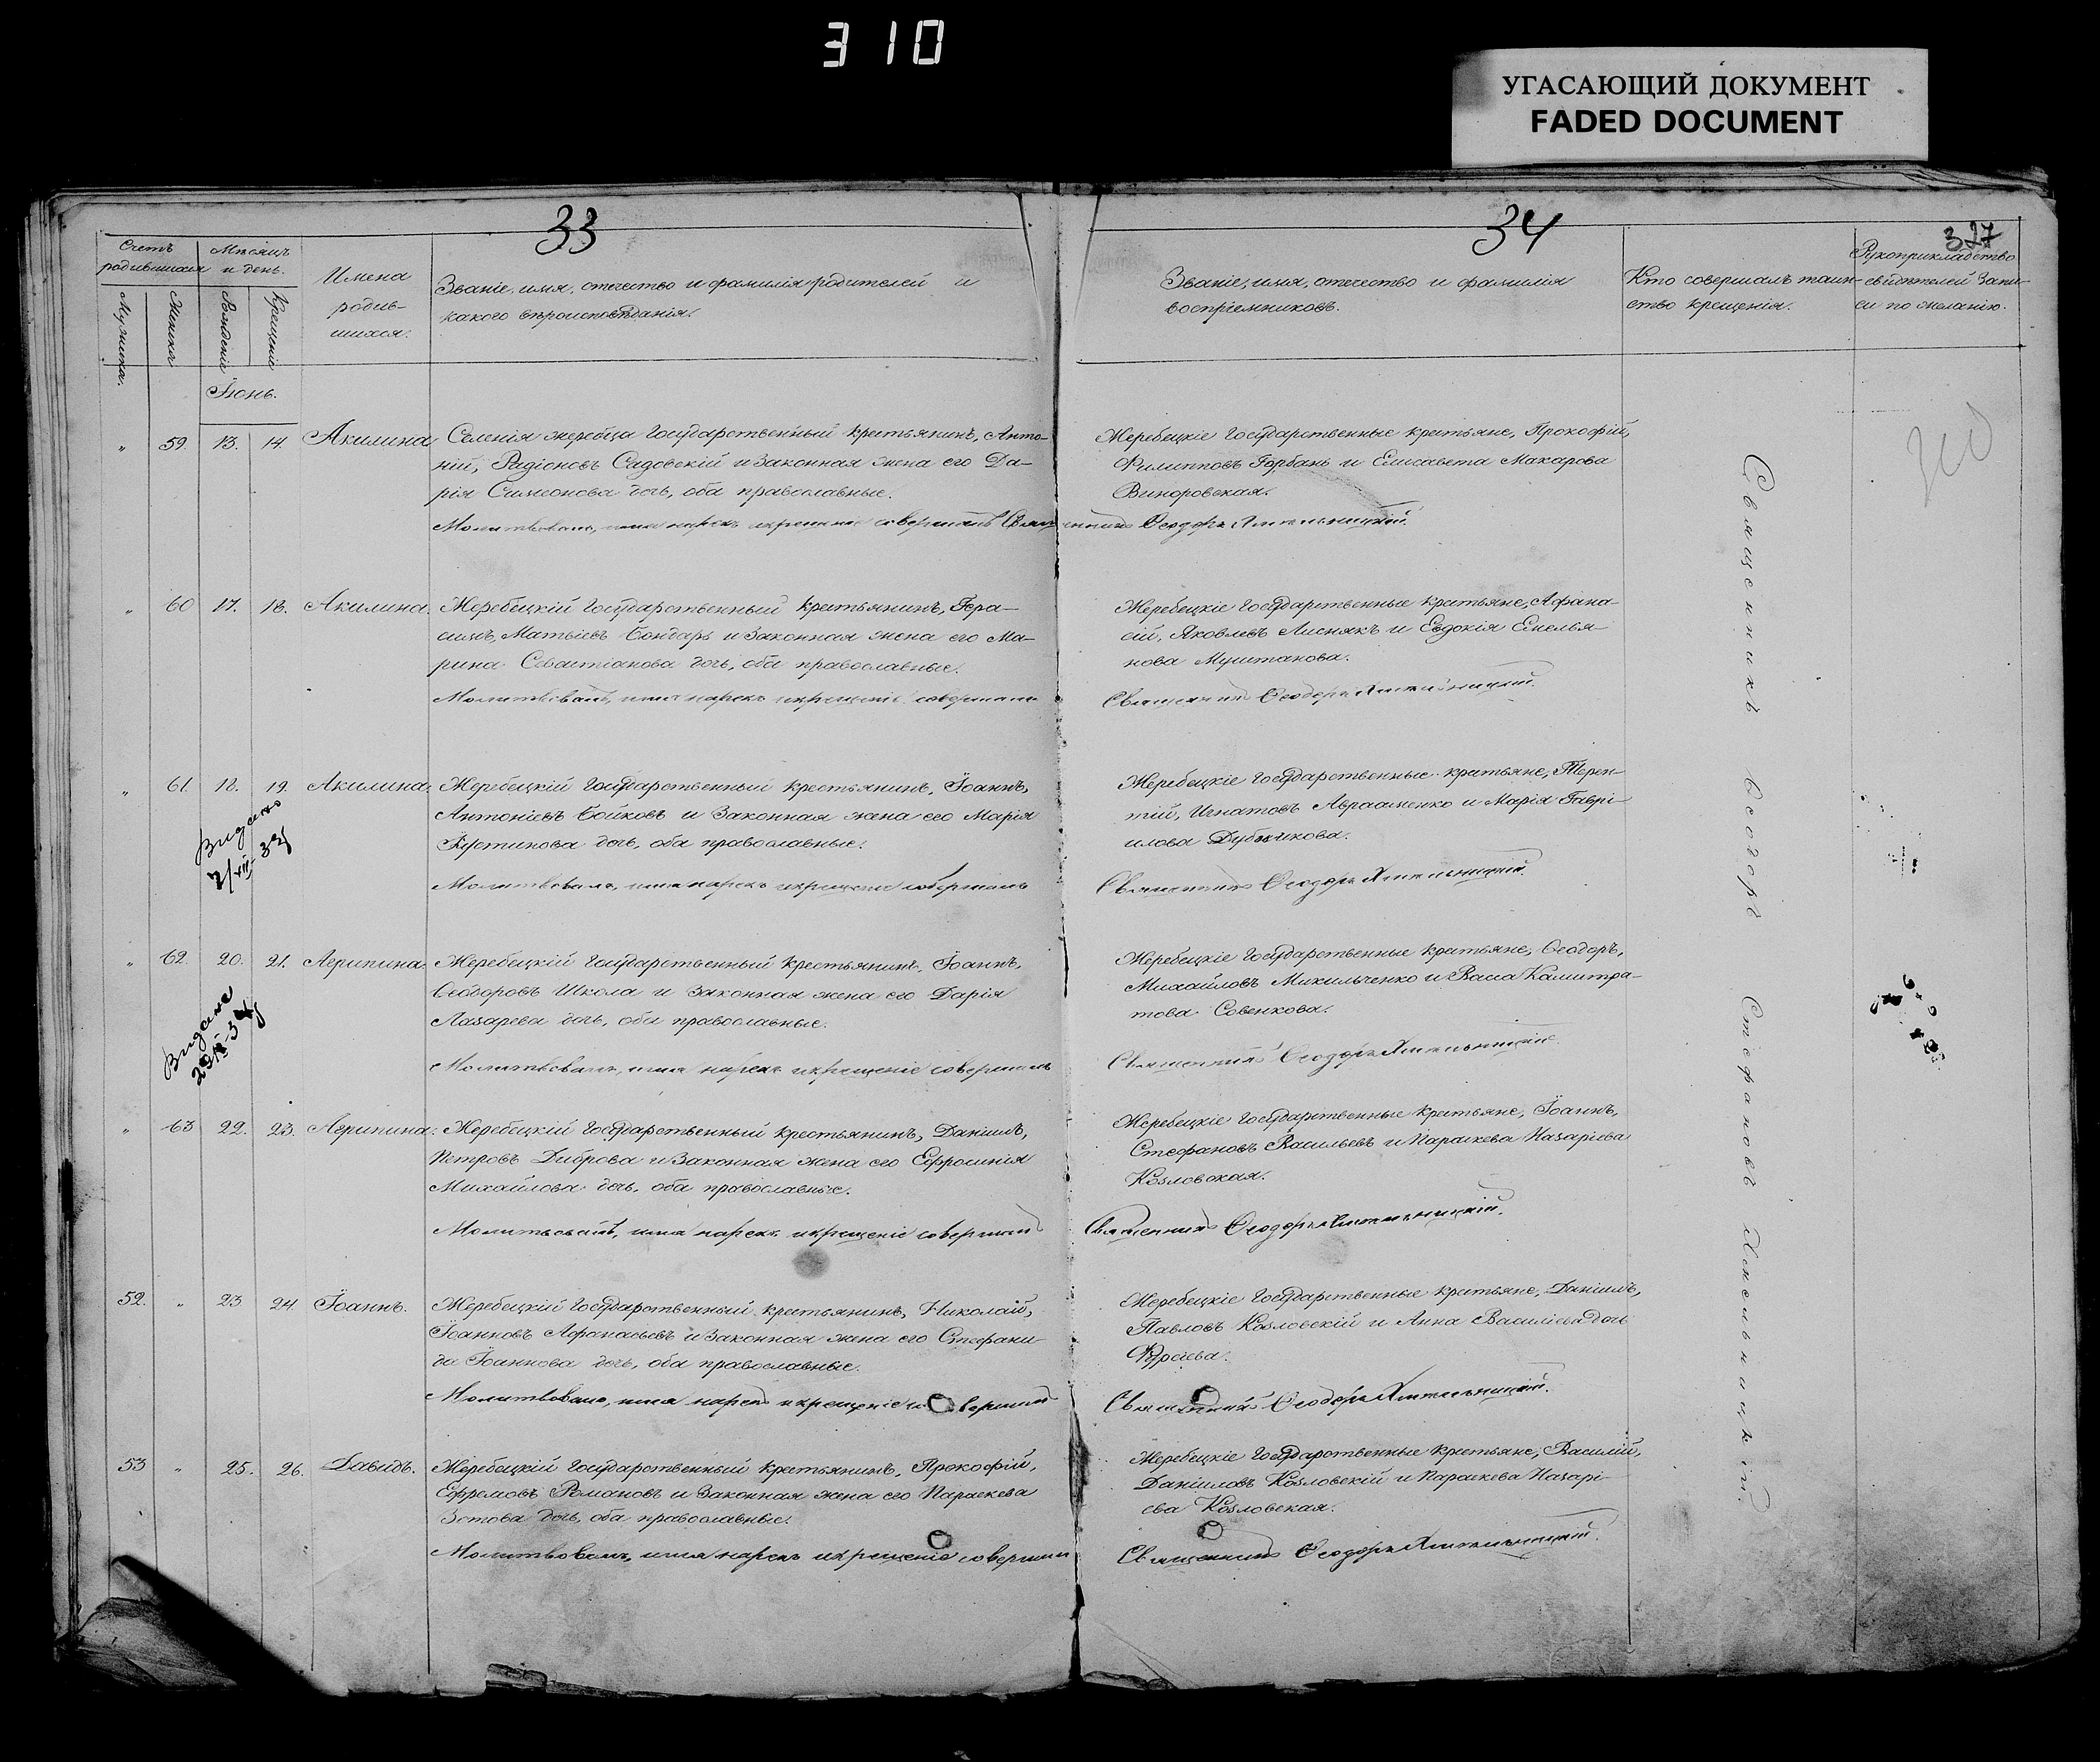 310
УГАСАЮЩИЙ ДОКУМЕНТ
FADED DOCUMENT
33
Счетъ родившихся
Мѣсяцъ и день.
Мужчина.
Женика
Рожденія
Крещенія
Имена
родив-
шихся.
Званіе, имя, отчество и фамилія родителей и
какого вѣроисповѣданія.
34
327
Званіе, имя, отчество и фамилія
воспріемниковъ.
Кто совершалъ таин-
ство крещенія.
Рукоприкладство
свидѣтелей запи-
си по желанію.
Іюнь.
" 59. 13. 14. Акилина
Селенія жеребца Государственный крестьянинъ, Анто-
ній, Радіоновъ Садовскій и законная жена его Да-
рія Симеонова дочь, оба православные.
Молитвовалъ, имя нарекъ и крещеніе совершалъ Священникъ Ѳеодоръ Хмельницкій.
Жеребецкіе Государственные крестьяне, Прокофій,
Филипповъ Горбань и Елисавета Макарова
Виноровская.
" 60 17. 18. Акилина.
Жеребецкій Государственный крестьянинъ, Гера-
симъ, Матвіевъ Бондарь и законная жена его Ма-
рина Севастіанова дочь, оба православные.
Молитвовалъ, имя нарекъ и крещеніе совершалъ
Жеребецкіе Государственные крестьяне, Афана-
сій, Яковлевъ Лиснякъ и Евдокія Емелья-
нова Муштанова.
Священникъ Ѳеодоръ Хмельницкій.
" 61 18. 19. Акилина.
Видано
7/VII 33
Жеребецкій Государственный крестьянинъ, Іоаннъ,
Антоніевъ Бойковъ и законная жена его Марія
Іустинова дочь, оба православные.
Молитвовалъ, имя нарекъ и крещеніе совершалъ
Жеребецкіе Государственные крестьяне, Терен-
тій, Игнатовъ Авраменко и Марія Гаврі-
илова Дубчикова.
Священникъ Ѳеодоръ Хмельницкій.
" 62. 20. 21. Агрипина.
Видане
Жеребецкій Государственный крестьянинъ, Іоаннъ,
Ѳеодоровъ Школа и законная жена его Дарія
Лазарева дочь, оба православные.
Молитвовалъ, имя нарекъ и крещеніе совершалъ
Жеребецкіе Государственные крестьяне, Ѳеодоръ,
Михайловъ Михильченко и Васса Калистра-
това Совенкова.
Священникъ Ѳеодоръ Хмельницкій.
" 63 22. 23. Агрипина.
Жеребецкій Государственный крестьянинъ, Даніилъ,
Петровъ Диброва и законная жена его Ефросинія
Михайлова дочь, оба православные.
Молитвовалъ, имя нарекъ и крещеніе совершалъ
Жеребецкіе Государственные крестьяне, Іоаннъ,
Стефановъ Васильевъ и Параскева Назаріева
Козловская.
Священникъ Ѳеодоръ Хмельницкій.
52. " 23 24 Іоаннъ.
Жеребецкій Государственный крестьянинъ, Николай,
Іоанновъ Афанасьевъ и законная жена его Стефани-
да Іоаннова дочь, оба православные.
Молитвовалъ, имя нарекъ и крещеніе совершалъ
Жеребецкіе Государственные крестьяне, Даніилъ,
Павловъ Козловскій и Анна Василіева дочь
Священникъ Ѳеодоръ Хмельницкій.
53 " 25. 26. Давидъ.
Жеребецкій Государственный крестьянинъ, Прокофій,
Ефремовъ Романовъ и законная жена его Параскева
Зотова дочь, оба православные.
Молитвовалъ, имя нарекъ и крещеніе совершалъ
Жеребецкіе Государственные крестьяне, Василій,
Даніиловъ Козловскій и Параскева Назарі-
ева Козловская.
Священникъ Ѳеодоръ Хмельницкій.
Священникъ Ѳеодоръ Стефановъ Хмельницкій.